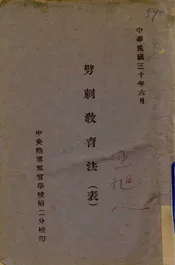 中華民國三十年六月
劈刺教育法（表）
中央陸軍軍官學校第二分校印